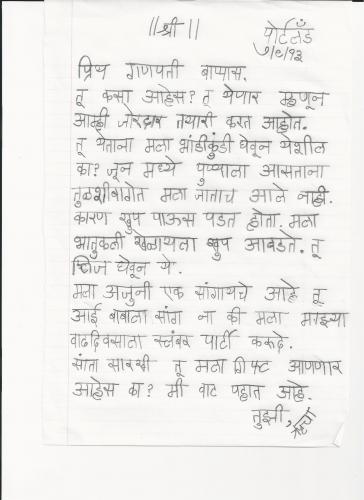 ||श्री||
पोर्टलँड
७/९/१३
प्रिय गणपती बाप्पास,
तू कसा आहेस? तू येणार म्हणून
आम्ही जोरदार तयारी करत आहोत.
तू येताना मला भांडीकुंडी घेवून येशील
का? जून मध्ये पुण्याला आसताना
तुळशीबागेत मला जाताच आले नाही.
कारण खुप पाऊस पडत होता. मला
भातुकली खेळायला खुप आवडते. तू
प्लिज घेवून ये.
मला अजुनी एक सांगायचे आहे तू
आई बाबाला सांग ना की मला माझ्या
वाढदिवसाला स्लंबर पार्टी करूदे.
सांता सारखी तू मला गिफ्ट आणणार
आहेस का? मी वाट पहात आहे.
तुझी,